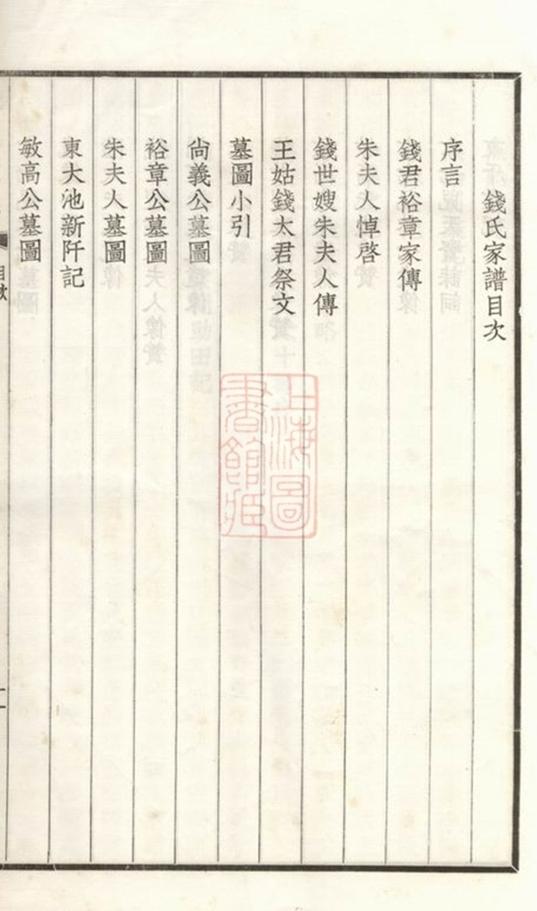 錢氏家譜目次
序言
錢君裕章家傳
朱夫人悼啓
錢世嫂朱夫人傳
王姑錢太君祭文
墓圖小引
尙義公墓圖
裕章公墓圖
朱夫人墓圖
東大池新阡記
敏高公墓圖
目次
上海圖
書館藏